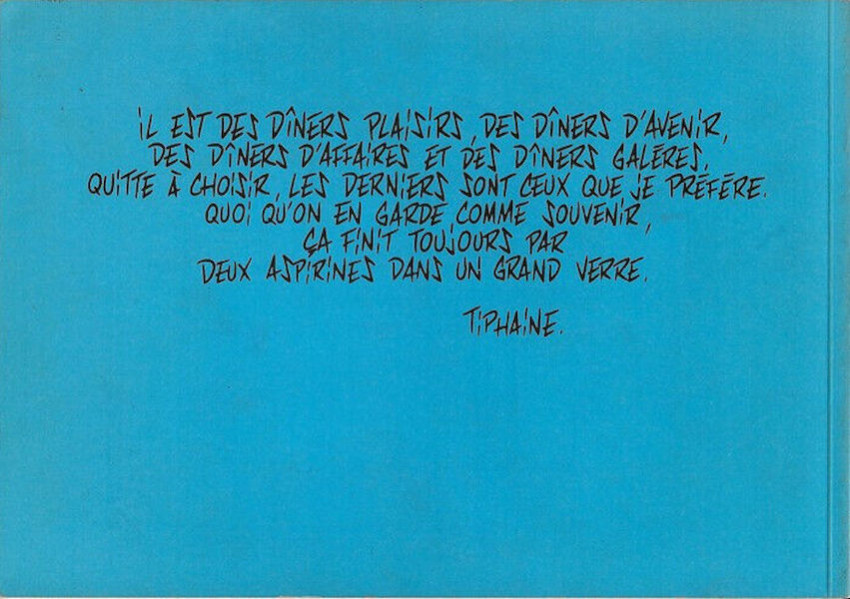 iL EST DES DÎNERS PLAiSiRS, DES DÎNERS D'AVENiR,
DES DÎNERS D'AFFAiRES ET DES DÎNERS GALÈRES,
QUiTTE À CHOiSiR, LES DERNiERS SONT CEUX QUE JE PRÉFÈRE.
QUOi QU'ON EN GARDE COMME SOUVENiR,
ÇA FiNiT TOUJOURS PAR
DEUX ASPiRiNES DANS UN GRAND VERRE.
TiPHAiNE.